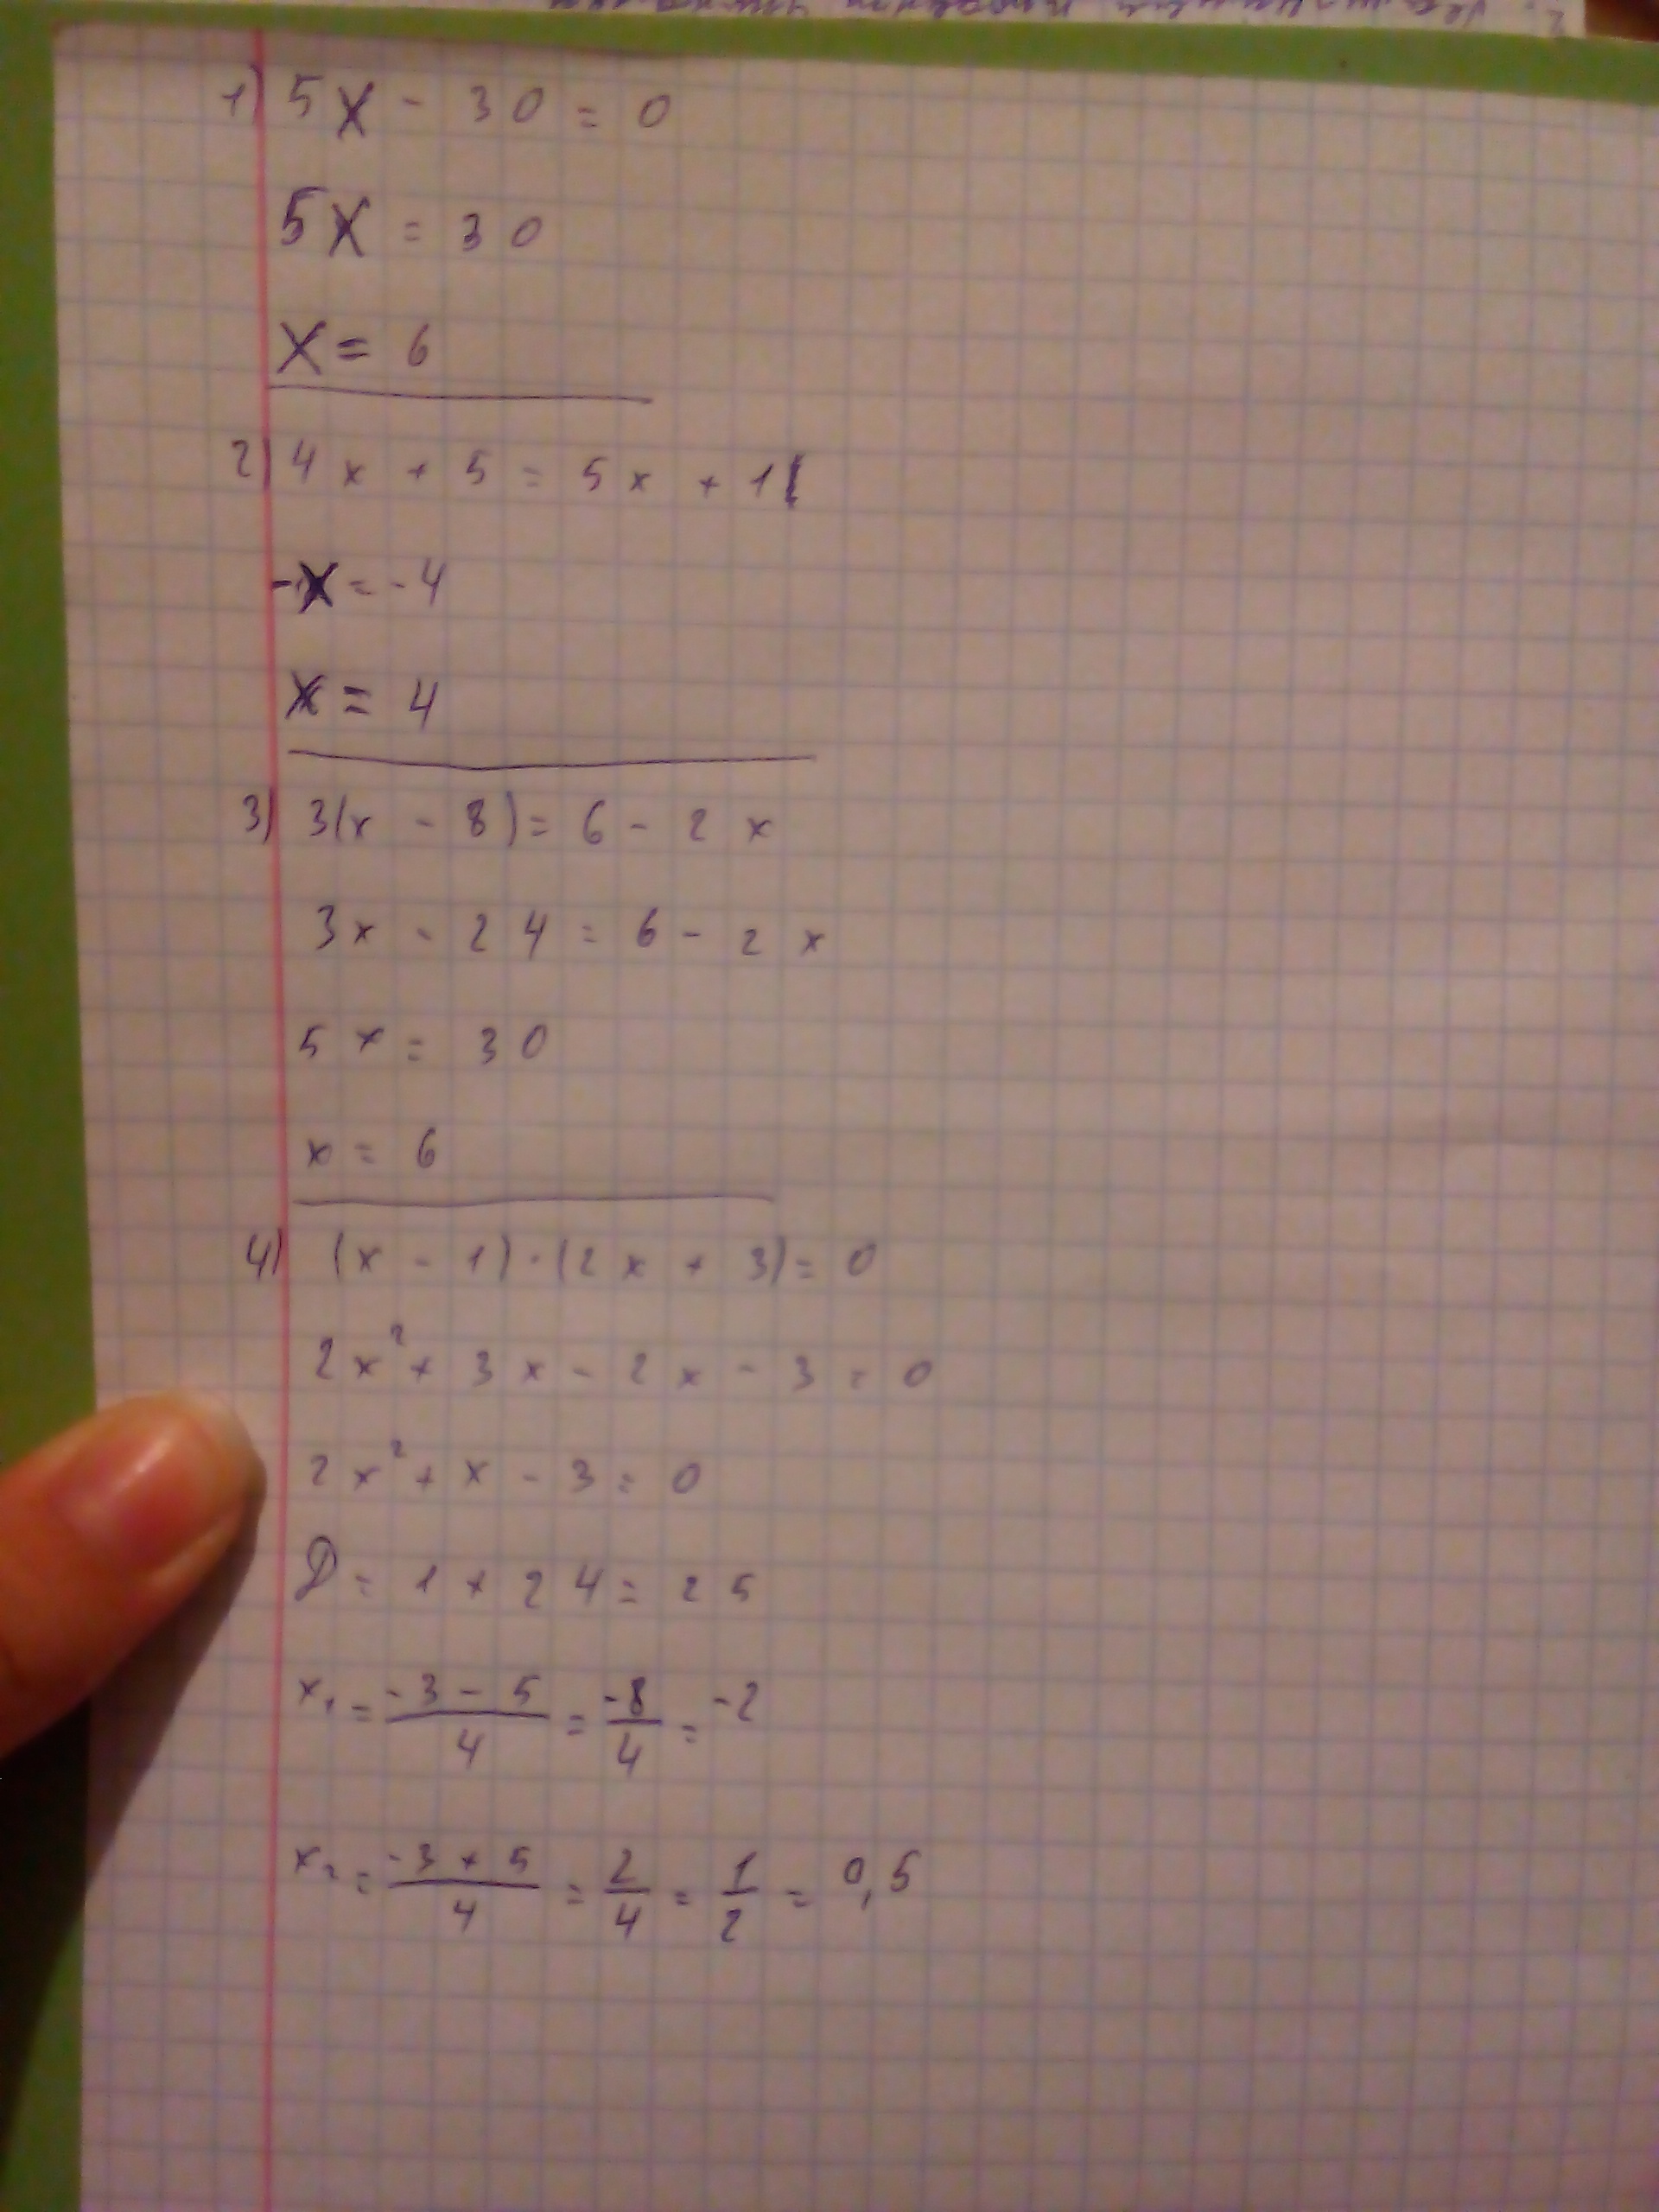 1) 5x - 30 = 0
5x = 30
x = 6
2) 4x + 5 = 5x + 1
-x = -4
x = 4
3) 3(x - 8) = 6 - 2x
3x - 24 = 6 - 2x
5x = 30
x = 6
4) (x - 1)·(2x + 3) = 0
2x² + 3x - 2x - 3 = 0
2x² + x - 3 = 0
D = 1 + 24 = 25
x₁ = (-3 - 5)/4 = -8/4 = -2
x₂ = (-3 + 5)/4 = 2/4 = 1/2 = 0,5